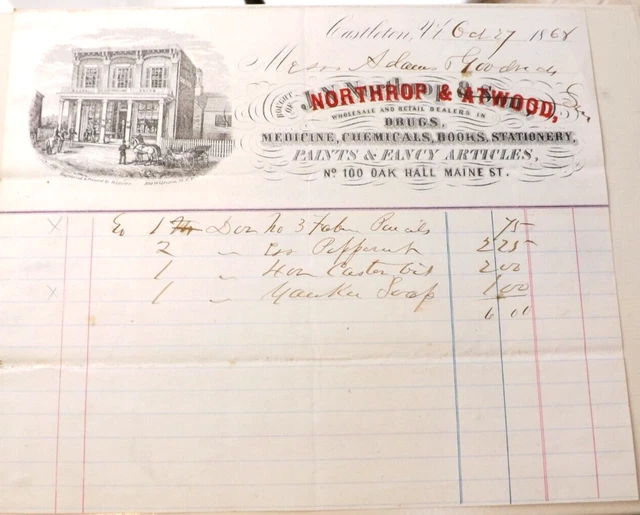 Castleton, Vt Oct 27 1868
Mess Adams & Goodrich
BOUGHT OF
NORTHROP & ATWOOD,
WHOLESALE AND RETAIL DEALERS IN
DRUGS,
MEDICINE, CHEMICALS, BOOKS, STATIONERY,
PAINTS & FANCY ARTICLES,
No 100 OAK HALL MAINE ST.
1 Doz No 3 Faber Pencils 75
2 " Ess Peppermt 2 25
1 " 4 Castor Oil 2 00
1 " Yankee Soap 1 00
6 00